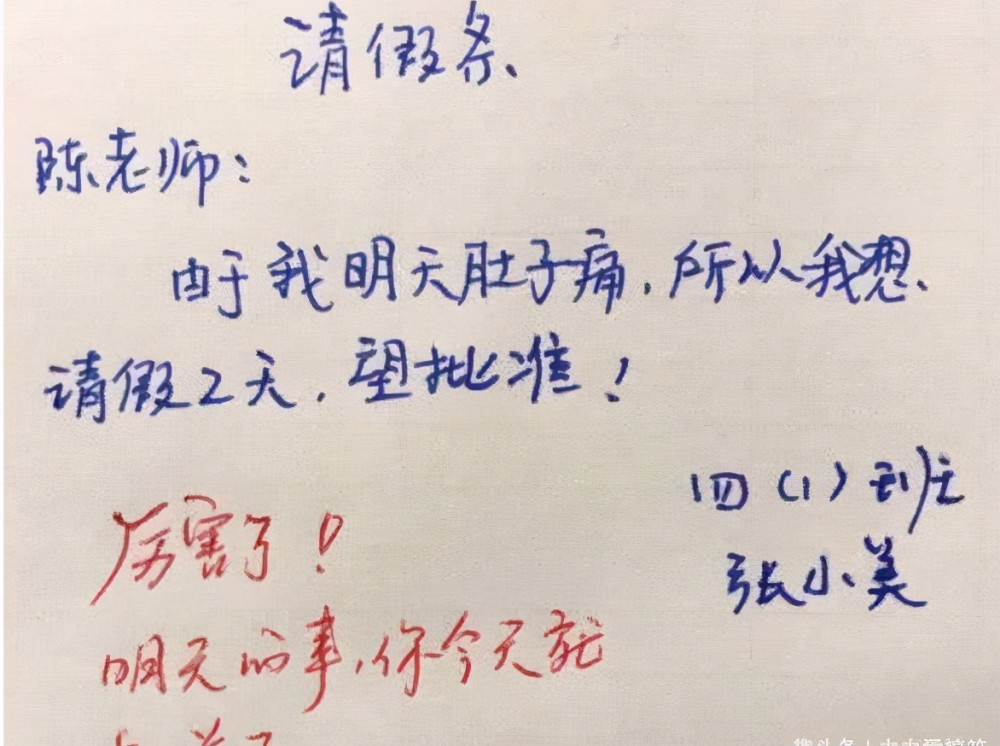 请假条
陈老师:
由于我明天肚子痛,所以我想
请假2天,望批准!
四(1)班
张小美
厉害了!
明天的事,你今天就